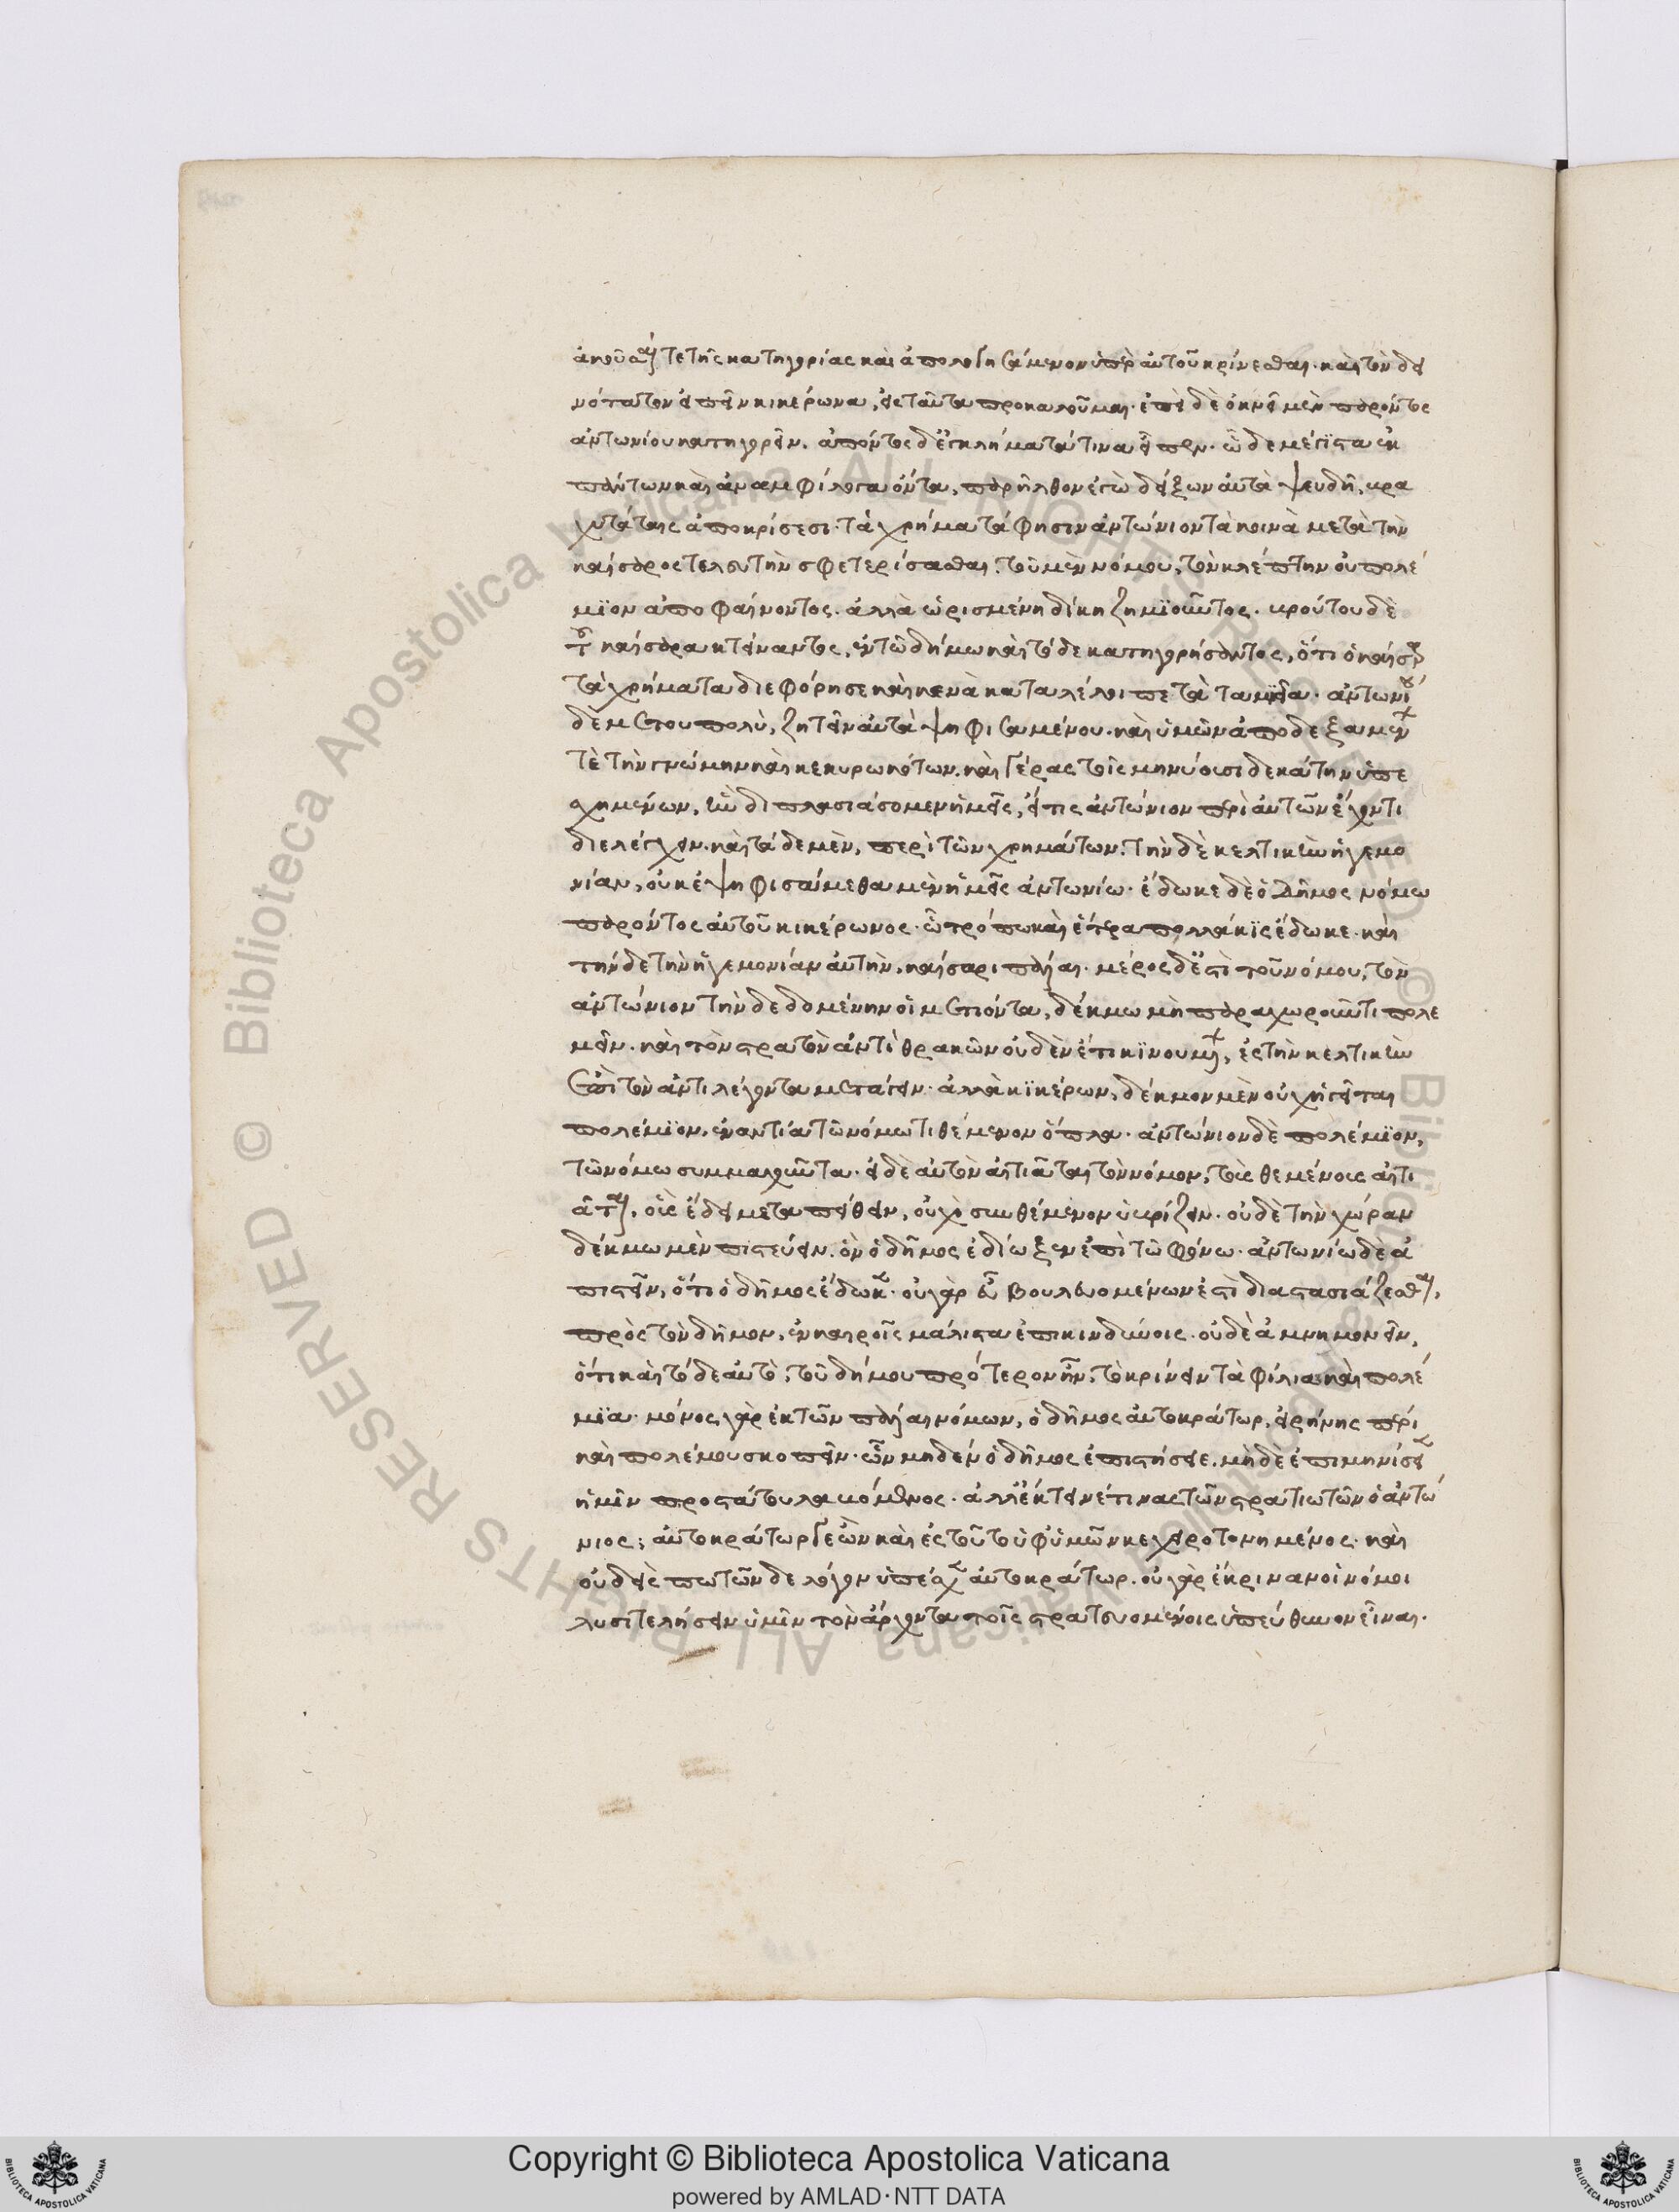 ἀκοῦσαί τε τῆς κατηγορίας καὶ ἀπολογησάμενον ὑπὲρ αὑτοῦ κρίνεσθαι. καὶ τὸν δει
νότατον εἰπεῖν κικέρωνα, ἐς ταῦτα προκαλοῦμαι. ἐπεὶ δὲ ὀκνεῖ μὲν παρόντος
ἀντωνίου κατηγορεῖν. ἀπόντος δ' ἐγκλήματά τινα εἶπεν. ὧδε μέγιστα ἐκ
πάντων καὶ ἀναμφίλογα ὄντα, παρῆλθον ἐγὼ δείξων αὐτὰ ψευδῆ, βρα
χυτάταις ἀποκρίσεσι. τὰ χρήματά φησιν ἀντώνιον τὰ κοινὰ μετὰ τὴν
καίσαρος τελευτὴν σφετερίσασθαι. τοῦ μὲν νόμου, τὸν κλέπτην οὐ πολέ
μϊον ἀποφαίνοντος. ἀλλὰ ὡρισμένη δίκη ζημϊοῦντος. βρούτου δὲ
τοῦ καίσαρα κτείναντος, ἐν τῶ δήμω καὶ τόδε κατηγορήσαντος, ὅτι ὁ καίσαρ
τὰ χρήματα διεφόρησε καὶ κενὰ καταλέλοιπε τὰ ταμιεῖα. ἀντωνίου
δὲ μετ' οὐ πολὺ, ζητεῖν αὐτὰ ψηφισαμένου. καὶ ὑμῶν ἀποδεξαμένων
τὲ τὴν γνώμην καὶ κεκυρωκότων. καὶ γέρας τοῖς μηνύουσι δεκάτην ὑπε
σχημένων, ἣν διπλασιάσομεν ἡμεῖς, εἴ τις ἀντώνιον περὶ αὐτῶν ἔχοι τι
διελέγχειν. καὶ τάδε μὲν, περὶ τῶν χρημάτων. τὴν δὲ κελτικὴν ἡγεμο
νίαν, οὐκ ἐψηφισάμεθα μὲν ἡμεῖς ἀντωνίω. ἔδωκε δὲ ὁ δῆμος νόμω
παρόντος αὐτοῦ κικέρωνος. ὧ τρόπω καὶ ἕτερα πολλάκϊς ἔδωκε. καὶ
τήνδε τὴν ἡγεμονίαν αὐτὴν, καίσαρι πάλαι. μέρος δ' ἐστὶ τοῦ νόμου, τὸν
ἀντώνιον τὴν δεδομένην οἱ μετιόντα, δέκμω μὴ παραχωροῦντι πολε
μεῖν. καὶ τὸν στρατὸν ἀντὶ θρακῶν οὐδὲν ἔτι κϊνουμένων, ἐς τὴν κελτικὴν
ἐπὶ τὸν ἀντιλέγοντα μετάγειν. ἀλλὰ κϊκέρων, δέκμον μὲν οὐχ ἡγεῖται
πολέμϊον, ἐναντία τῶ νόμω τιθέμενον ὅπλα. ἀντώνιον δὲ πολέμϊον,
τῶ νόμω συμμαχοῦντα. εἰ δὲ αὐτὸν αἰτιᾶται τὸν νόμον, τοὺς θεμένους αἰτι
ᾶται, οὓς ἔδει μεταπείθειν, οὐχὶ συνθέμενον ὑβρίζειν. οὐδὲ τὴν χώραν
δέκμω μὲν πιστεύειν. ὃν ὁ δῆμος ἐδίωξεν ἐπὶ τῶ φόνω. ἀντωνίω δὲ ἀ
πιστεῖν, ὅτι ὁ δῆμος ἔδωκεν. οὐ γὰρ εὖ βουλευομένων ἐστὶ διαστασιάζεσθαι,
πρὸς τὸν δῆμον, ἐν καιροῖς μάλιστα ἐπικινδύνοις. οὐδὲ ἀμνημονεῖν,
ὅτι καὶ τόδε αὐτὸ, τοῦ δήμου πρότερον ἦν, τὸ κρίνειν τὰ φίλια καὶ πολέ
μϊα. μόνος γὰρ ἐκ τῶν πάλαι νόμων, ὁ δῆμος αὐτοκράτωρ, εἰρήνης πέρι
καὶ πολέμου σκοπεῖν. ὧν μηδὲν ὁ δῆμος ἐπιστήσειε, μὴ δὲ ἐπιμηνίσειεν
ἡμῖν προστάτου λαβόμενος. ἀλλ' ἔκτεινέ τινας τῶν στρατιωτῶν ὁ ἀντώ
νιος; αὐτοκράτωρ γε ὢν καὶ ἐς τοῦτο ὑφ' ὑμῶν κεχειροτονημένος. καὶ
οὐδείς πω τῶνδε λόγον ὑπέσχεν αὐτοκράτωρ. οὐ γὰρ ἔκριναν οἱ νόμοι
λυσιτελήσειν ὑμῖν τὸν ἄρχοντα τοῖς στρατευομένοις ὑπεύθυνον εἶναι.
© Biblioteca Apostolica Vaticana ALL RIGHTS RESERVED
Copyright © Biblioteca Apostolica Vaticana
powered by AMLAD·NTT DATA